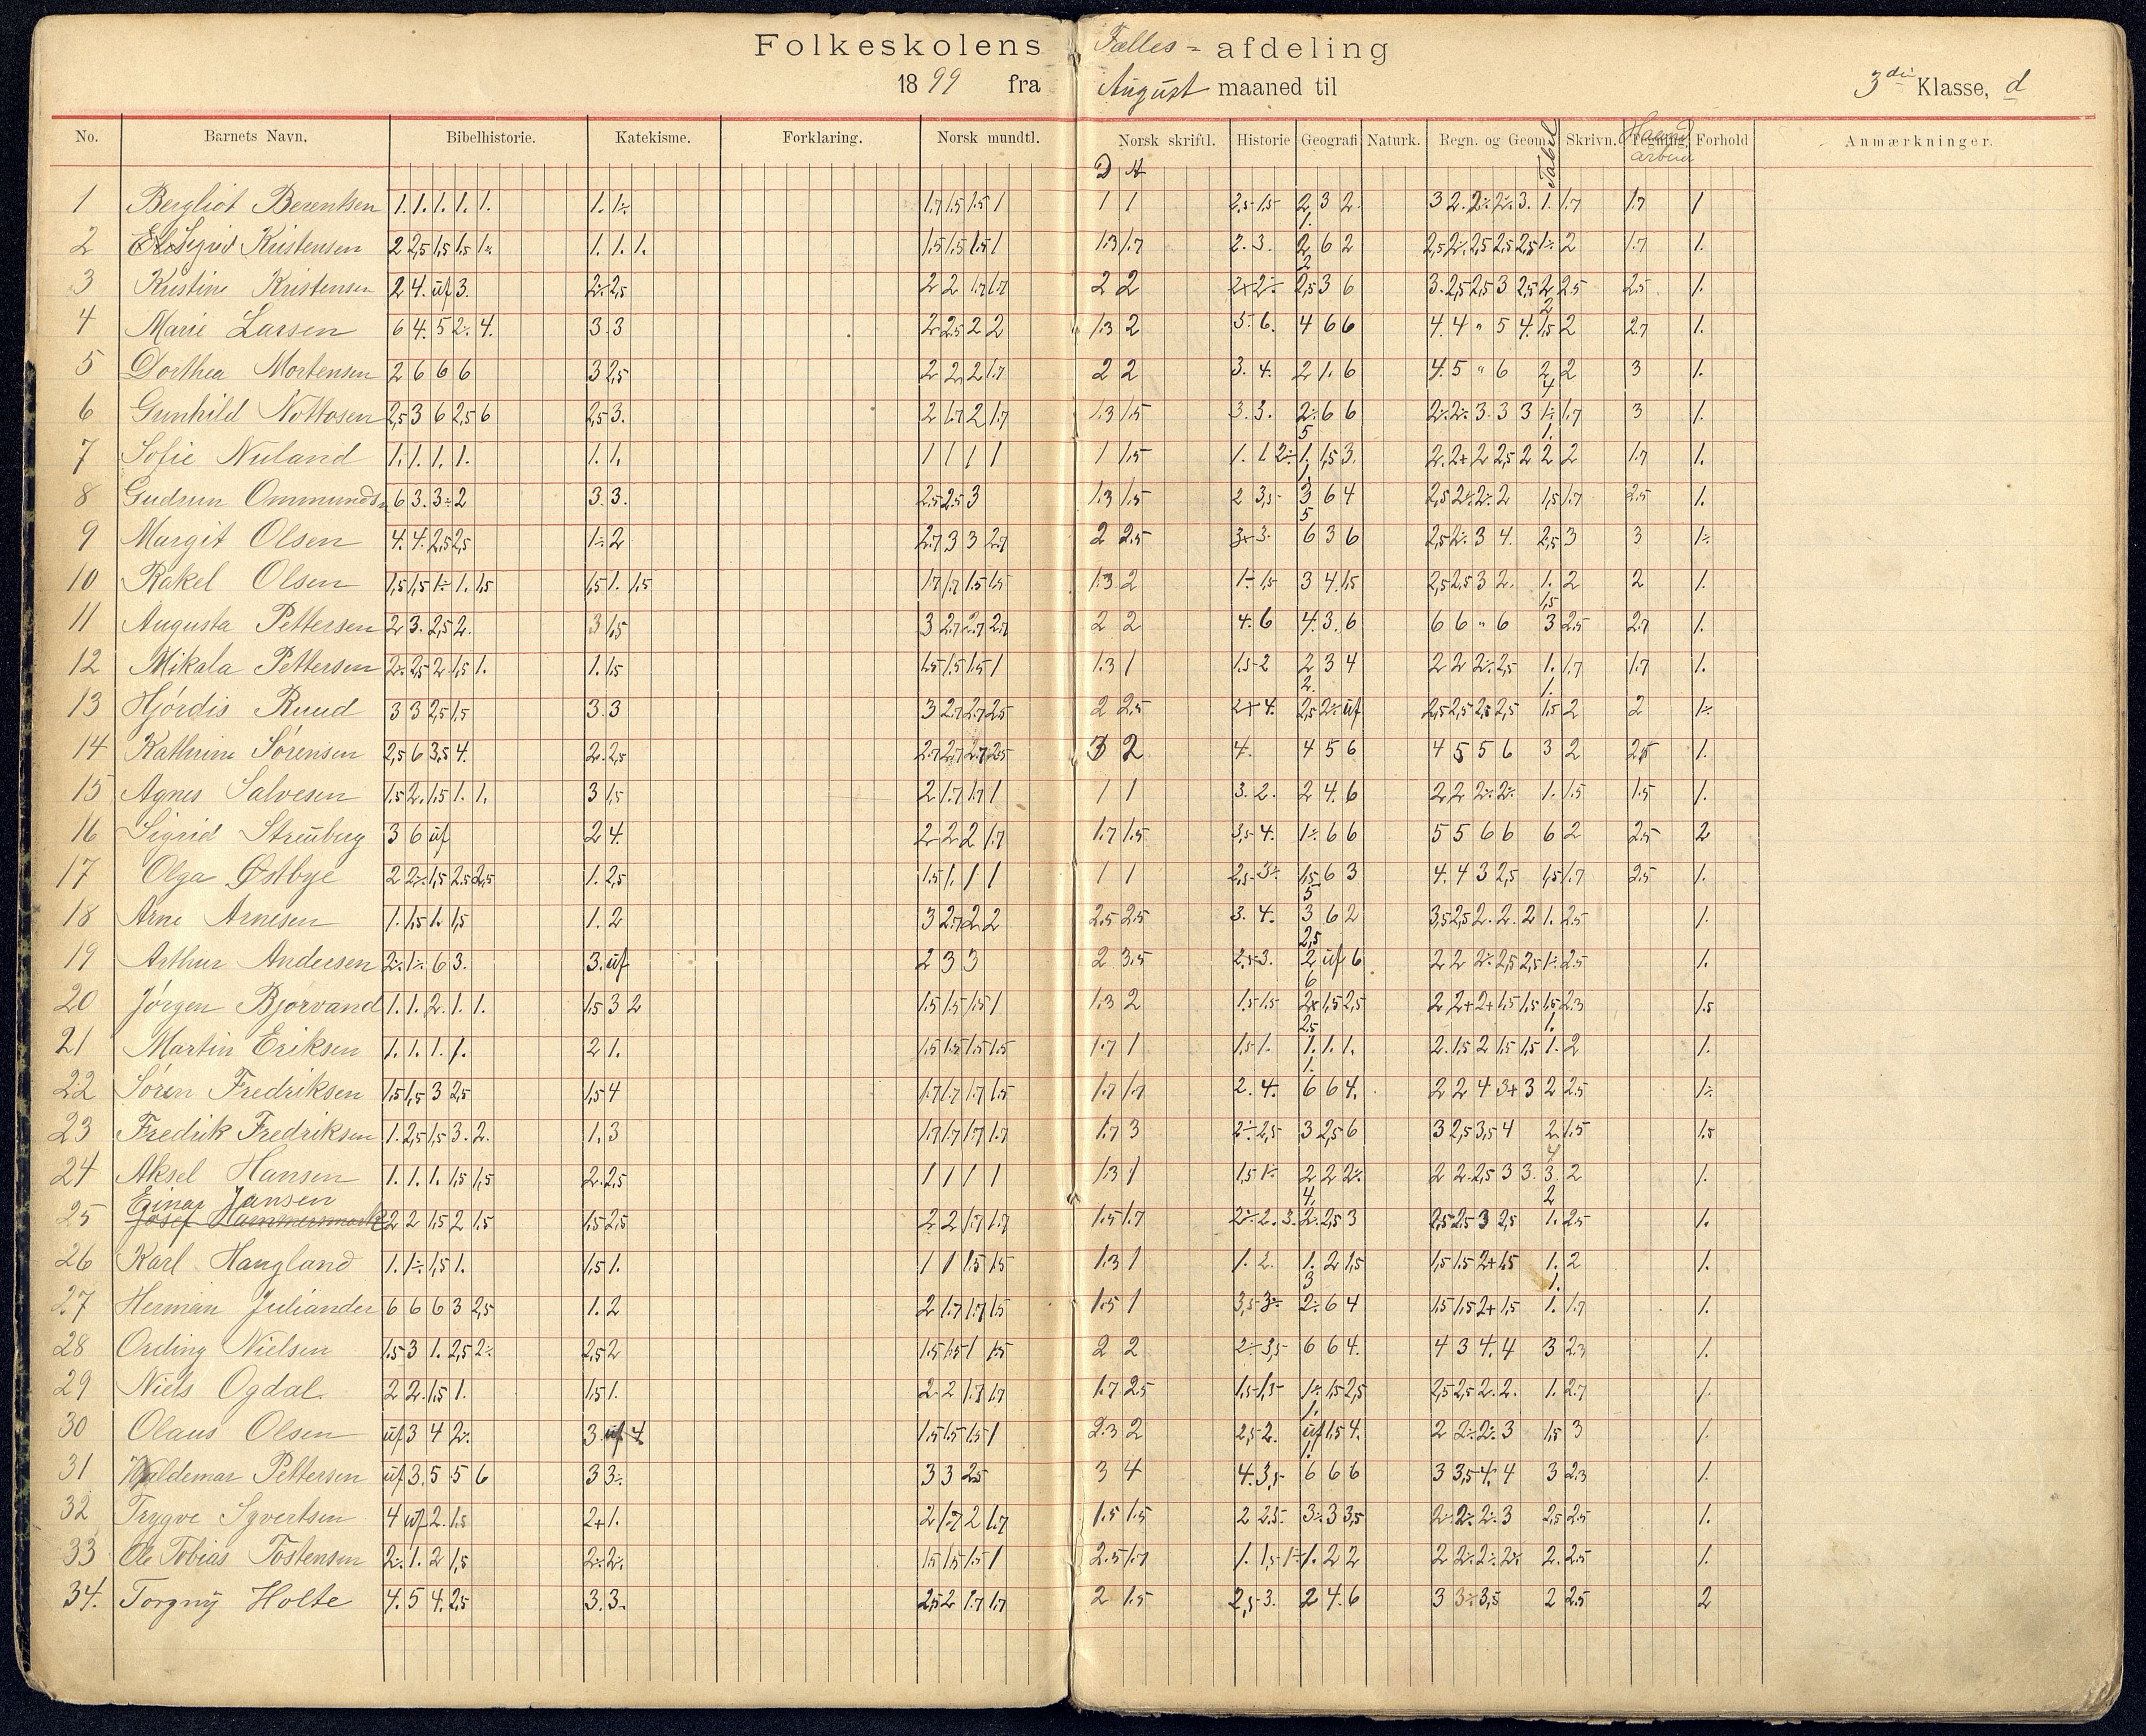 Folkeskolens Fælles - afdeling
1899 fra August maaned til 3die Klasse, d
No. Barnets Navn. Bibelhistorie. Katekisme. Forklaring. Norsk mundtl. Norsk skriftl. Historie Geografi Naturk. Regn. og Geom. Tabel Skrivn. Tegning. Haand arbeid Forhold Anmærkninger.
D H
1 Bergliot Berentsen 1. 1. 1. 1. 1. 1. 1÷ 1.7 1.5 1.5 1 1 1 2,5 1,5 2 3 2. 3 2. 2÷ 2÷ 3. 1. 1.7 1.7 1
1.
2 Sigrid Kristensen 2 2,5 1,5 1,5 1÷ 1. 1. 1. 1.5 1.5 1.5 1 1.3 1.7 2. 3. 2 6 2 2,5 2÷ 2,5 2,5 2,5 1÷ 2 1.7 1.
2
3 Kristine Kristensen 2 4. uf 3. 2÷ 2,5 2 2 1.7 1.7 2 2 2+ 2÷ 2,5 3 6 3. 2,5 2,5 3 2,5 2 2.5 2.5 1.
2
4 Marie Larsen 6 4. 5 2÷ 4. 3. 3 2 2.5 2 2 1.3 2 5. 6. 4 6 6 4. 4 " 5 4. 1,5 2 2.7 1.
5 Dorthea Mortensen 2 6 6 6 3 2,5 2 2 2 1.7 2 2 3. 4. 2 1. 6 4. 5 " 6 2 2 3 1.
4
6 Gunhild Nottosen 2,5 3 6 2,5 6 2,5 3. 2 1.7 2 1.7 1.3 1.5 3. 3. 2÷ 6 6 2÷ 2÷ 3. 3 3 1÷ 1.7 3 1.
5 1.
7 Sofie Nuland 1. 1. 1. 1. 1. 1. 1 1 1 1 1 1.5 1. 1 2÷ 1. 1,5 3. 2. 2+ 2 2,5 2 2 2 1.7 1.
1
8 Gudrun Ommundsn 6 3. 3÷ 2 3. 3. 2.5 2.5 3 1.3 1.5 2 3,5 3 6 4 2,5 2÷ 2÷ 2 1,5 1.7 2.5 1.
5
9 Margit Olsen 4. 4. 2,5 2,5 1÷ 2 2.7 3 3 2.7 2 2.5 3+ 3. 6 3 6 2,5 2÷ 3 4 2,5 3 3 1÷
10 Rakel Olsen 1,5 1,5 1÷ 1. 1,5 1,5 1. 1,5 1.7 1.7 1.5 1.5 1.3 2 1÷ 1,5 3 4. 1,5 2,5 2,5 3 2. 1. 2 2 1.
1,5
11 Augusta Pettersen 2 3. 2,5 2. 3 1,5 3 2.7 2.7 2.7 2 2 4. 6 4. 3. 6 6 6 " 6 3 2.5 2.7 1.
12 Mikala Pettersen 2÷ 2,5 2. 1,5 1. 1. 1,5 1.5 1.5 1.5 1 1.3 1 1.5 2 2 3 4 2 2 2÷ 2,5 1. 1.7 1.7 1.
2. 1.
13 Hjördis Ruud 3 3 2,5 1,5 3. 3 3 2.7 2.7 2.5 2 2.5 2+ 4. 2,5 2÷ uf 2,5 2,5 2,5 2,5 1,5 2 2 1÷
14 Kathrine Sörensen 2,5 6 3,5 4. 2. 2,5 2.7 2.7 2.7 2.5 3 2 4. 4 5 6 4 5 5 6 3 2 2.5 1.
15 Agnes Salvesen 1.5 2. 1.5 1. 1. 3 1,5 2 1.7 1.7 1 1 1 3. 2. 2 4. 6 2 2 2÷ 2÷ 1. 1.5 1.5 1.
16 Sigrid Streuberg 3 6 uf 2 4. 2 2 2 1.7 1.7 1.5 3,5 4. 1÷ 6 6 5 5 6 6 6 2 2.5 2
17 Olga Østbye 2 2÷ 1,5 2.5 2,5 1. 2,5 1.5 1. 1 1 1 1 2,5 3÷ 1,5 6 3 4. 4 3 2,5 1,5 1.7 2.5 1.
5
18 Arne Arnesen 1. 1,5 1. 1,5 1. 2 3 2.7 2 2 2.5 2.5 3. 4. 3 6 2 3,5 2,5 2. 2. 2 1. 2.5 1.
2,5
19 Arthur Andersen 2÷ 1÷ 6 3. 3. uf 2 3 3 2 3.5 2,5 3. 2 uf 6 2 2 2÷ 2,5 2,5 1÷ 2.5 1.
6
20 Jörgen Bjorvand 1. 1. 2. 1. 1. 1.5 3 2 1.5 1.5 1.5 1 1.3 2 1.5 1.5 2+ 1,5 2,5 2 2+ 2+ 1,5 1,5 1,5 2.3 1.5
2,5 1.
21 Martin Eriksen 1. 1. 1. 1. 2 1. 1.5 1.5 1.5 1.5 1.7 1 1,5 1. 1. 1. 1. 2. 1.5 2 1,5 1,5 1. 2 1.
1.
22 Sören Fredriksen 1.5 1,5 3 2,5 1,5 4 1.7 1.7 1.7 1.5 1.7 1.7 2. 4. 6 6 4. 2 2 4 3+ 3 2 2.5 1÷
23 Fredrik Fredriksen 1. 2,5 1,5 3. 2. 1. 3 1.7 1.7 1.7 1.7 1.7 3 2÷ 2,5 3 2,5 6 3 2,5 3,5 4 2 1.5 1.5
4
24 Aksel Hansen 1. 1. 1. 1,5 1,5 2. 2,5 1 1 1 1 1.3 1 1,5 1÷ 2 2 2÷ 2 2. 2,5 3 3. 3. 2 1.
4. 2
Einar Jansen
25 Josef Hammersmark 2 2 1,5 2 1.5 1,5 2,5 2 2 1.7 1.7 1.5 1.7 2÷ 2. 3. 2. 2,5 3 2,5 2,5 3 2,5 1. 2.5 1.
26 Karl Haugland 1. 1÷ 1,5 1. 1,5 1. 1 1 1.5 1.5 1.3 1 1. 2. 1. 2 1,5 1,5 1.5 2+ 1,5 1. 2 1.
3 1.
27 Herman Juliander 6 6 6 3 2,5 1. 2 2 1.7 1.7 1.5 1.5 1 3,5 3÷ 2÷ 6 4 1.5 1.5 2+ 1,5 1. 1.7 1.
28 Erling Nielsen 1.5 3 1. 2,5 2÷ 2,5 2 1.5 1.5 1 1.5 2 2 2÷ 3,5 6 6 4. 4 3 4. 4 3 2.3 1.
29 Niels Ogdal. 2 2. 1.5 1. 1,5 1. 2 2 1.7 1.7 1.7 2.5 1,5 1,5 1÷ 1.5 2,5 2,5 2,5 2. 2. 1. 2.7 1.
1.
30 Olaus Olsen uf 3 4 2÷ 3. uf 4 1.5 1.5 1.5 1 2.3 2 2,5 2. uf 1.5 4. 2 2÷ 2÷ 3 1,5 3 1.
1.
31 Valdemar Pettersen uf 3. 5 5 6 3 3÷ 3 3 2.5 3 4 4. 3,5 6 6 6 3 3,5 4. 4 3 2.3 1.
32 Trygve Syvertsen 4 uf 2. 1.5 2+ 1. 2 1.7 2 1.7 1.5 1.5 2 2.5 3÷ 3 3,5 2÷ 2÷ 2÷ 3 2,5 2.5 1.
33 Ole Tobias Tostensen 2÷ 1. 2 1,5 2÷ 2÷ 1.5 1.5 1.5 1 2.5 1.7 1. 1,5 1÷ 1. 2 2 2 2÷ 2÷ 2÷ 2. 2.5 1.
34. Torgny Holte 4. 5 4. 2,5 3. 3. 2,5 2 1.7 1.7 2 1.5 2,5 3. 2 4. 6 3 3÷ 3,5 2 2.5 2